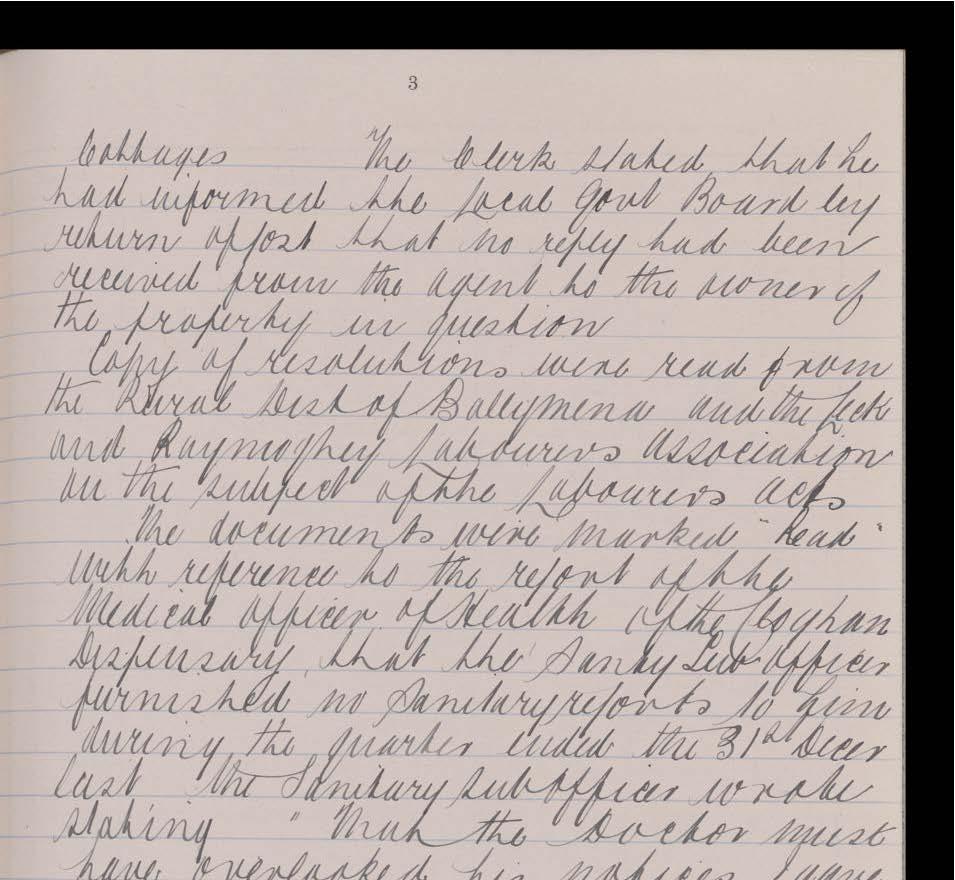 3
Cottages The Clerk stated that he
had informed the Local Govt Board by
return of post that no reply had been
received from the agent to the owner of
the property in question
Copy of resolutions were read from
the Rural Dist of Ballymena and the Leck
and Raymoghey Labourers Association
on the subject of the Labourers Acts
The documents were marked "Read"
With reference to the report of the
Medical Officer of Health of the Cloghan
Dispensary that the Sany Sub Officer
furnished no Sanitary reports to him
during the quarter ended the 31st Decer
last the Sanitary Sub Officer wrote
stating " that the Doctor must
have overlooked his notices I gave